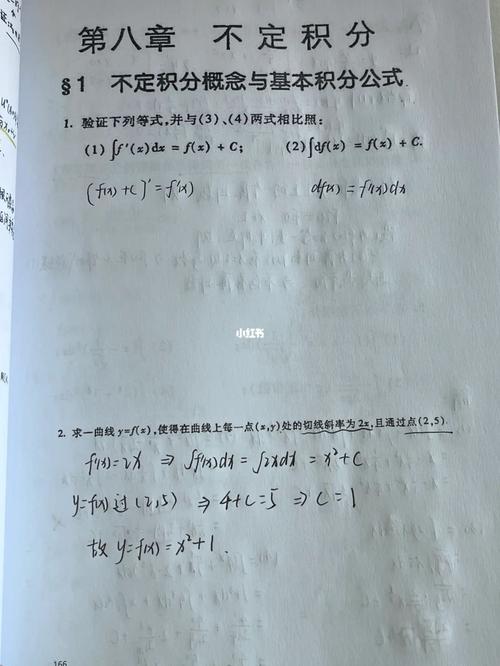 第八章 不定积分
§1 不定积分概念与基本积分公式
1. 验证下列等式,并与(3)、(4)两式相比照:
(1) ∫f′(x)dx = f(x) + C; (2) ∫df(x) = f(x) + C.
(f(x)+C)′ = f′(x) df(x) = f′(x)dx
小红书
2. 求一曲线 y=f(x),使得在曲线上每一点(x,y)处的切线斜率为2x,且通过点(2,5).
f′(x)=2x ⇒ ∫f′(x)dx = ∫2xdx = x²+C
y=f(x)过(2,5) ⇒ 4+C=5 ⇒ C=1
故 y=f(x)=x²+1.
166